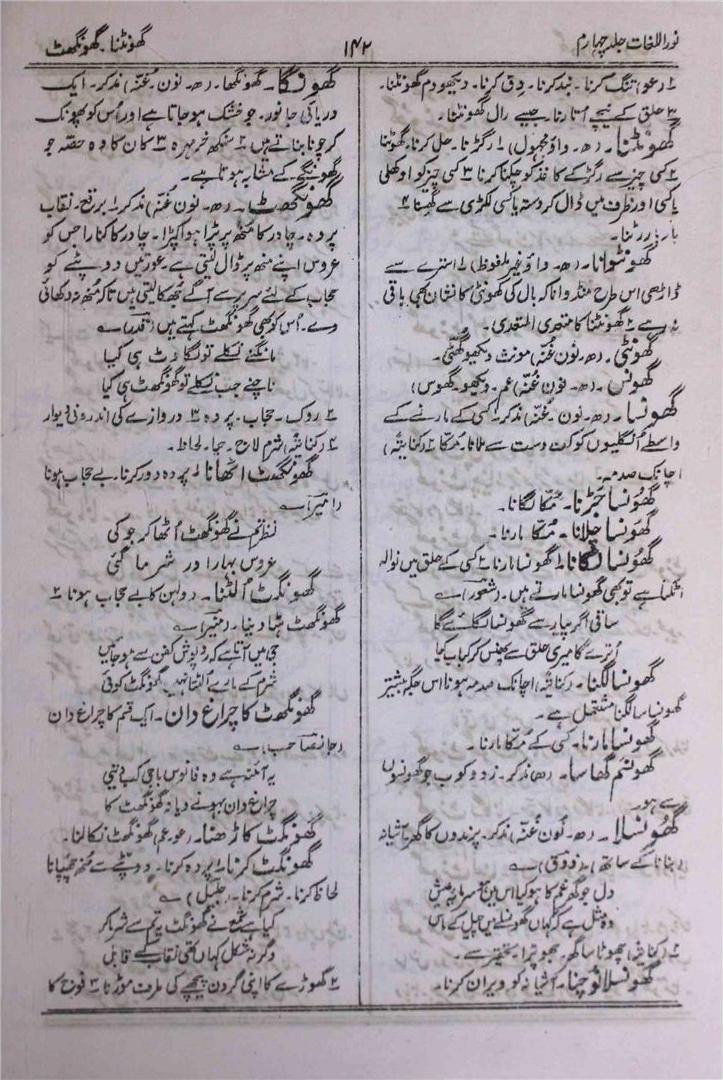 نور اللغات جلد چہارم
۱۴۲
گھونٹنا۔ گھونگھٹ
۲ (عو) تنگ کرنا۔ بند کرنا۔ دِق کرنا۔ دیکھو دم گھونٹنا۔
۳ حلق کے نیچے اُتارنا۔ جیسے رال گھونٹنا۔
گھوٹنا۔ (ھ۔ واؤ مجہول) ۱ رگڑنا۔ حل کرنا۔ گھوٹنا
۲ کسی چیز سے رگڑ کے کاغذ کو چکنا کرنا ۳ کسی چیز کو اوکھلی
یا کسی اور ظرف میں ڈال کر دستہ یا کسی لکڑی سے گھسنا ۴
بار بار رٹنا۔
گھونٹوانا۔ (ھ۔ واؤ غیر ملفوظ) ۱ اُسترے سے
ڈاڑھی اس طرح منڈوانا کہ بال کی کھونٹی کا نشان بھی باقی
نہ رہے ۲ گھونٹنا کا متعدی المتعدی۔
گھونٹی۔ (ھ۔ نون غنّہ) مونث دیکھو گھٹّی۔
گھونس۔ (ھ۔ نون غنّہ) عم۔ دیکھو۔ گھوس)
گھونسا۔ (ھ۔ نون۔ غنّہ) مذکر۔ ۱ کسی کے مارنے کے
واسطے اُنگلیوں کو کف دست سے ملانا۔ مُکّا ۲ (کنایتہً)
اچانک صدمہ۔
گھونسا جَڑنا۔ مُکّا لگانا۔
گھونسا چلانا۔ مُکّا مارنا۔
گھونسا لگانا ۱ گھونسا مارنا ۲ کسی کے حلق میں نوالہ
اٹکتا ہے تو بھی گھونسا مارتے ہیں۔ (شعور) ؎
ساقی اگر پیار سے گھونسا لگائے گا
اُترے گا میری حلق سے پھنس کر کباب کیا
گھونسا لگنا۔ (کنایتہً) اچانک صدمہ ہونا اس جگہ بیشتر
گھونسا سا لگنا مستعمل ہے۔
گھونسا مارنا۔ کسی کے مُکّا مارنا۔
گھونسم گھاسا۔ (ھ) مذکر۔ زد و کوب جو گھونسوں
سے ہو۔
گھونسلا۔ (ھ۔ نون غنّہ) مذکر۔ پرندوں کا گھر۔ آشیانہ
(بنانا کے ساتھ) (ذوق) ؎
دل جو گھر غم کا ہو کیا اس میں ہو سرمایہ عیش
وہ مثل ہے کہ کہاں گھونسلے میں چیل کے ماس
۲ (کنایتہً) چھوٹا سا گھر۔ جھونپڑا۔ تحقیر سے۔
گھونسلا نوچنا۔ آشیانہ کو ویران کرنا۔
گھونگا۔ گھونگھا۔ (ھ۔ نون۔ غنّہ) مذکر۔ ایک
دریائی جانور۔ جو خشک ہو جاتا ہے اور اُس کو پھونک
کر چونا بناتے ہیں ۲ سنکھ خر مہرہ ۳ کان کا وہ حصّہ جو
گھونگے کے مشابہ ہوتا ہے۔
گھونگھٹ۔ (ھ۔ نون غنّہ) مذکر۔ ۱ برقع۔ نقاب
پردہ۔ چادر کا منھ پر پڑا ہوا کپڑا۔ چادر کا کنارا جس کو
عروس اپنے منھ پر ڈال لیتی ہے۔ عورتیں دوپٹے کو
حجاب کے لئے سر پر سے آگے جھکا لیتی ہیں تاکہ منھ نہ دکھائی
دے۔ اُس کو بھی گھونگھٹ کہتے ہیں (قدر) ؎
مانگنے نکلے تو لگاوٹ ہی کیا
ناچنے جب نکلے تو گھونگھٹ ہی کیا
۲ روک۔ حجاب۔ پردہ ۳ دروازے کی اندرونی دیوار
۴ (کنایتہً) شرم۔ لاج۔ حیا۔ لحاظ۔
گھونگھٹ اٹھانا ۱ پردہ دور کرنا۔ بے حجاب ہونا
(امیر) ؎
نظر تم نے گھونگھٹ اُٹھا کر جو کی
عروس بہار اور شرما گئی
گھونگٹ اُلٹنا۔ دولہن کا بے حجاب ہونا ۲
گھونگھٹ ہٹا دینا۔ (منیر) ؎
جی میں آتا ہے کہ روپوش کفن سے ہو جائیں
شرم کے مارے اُلٹتا نہیں گھونگٹ کوئی
گھونگھٹ کا چراغ دان۔ ایک قسم کا چراغ دان
(جانصاحب) ؎
یہ آئنہ ہے وہ فانوس باجی کب دیتی
چراغ دان ہونے دیا نہ گھونگھٹ کا
گھونگٹ کاڑھنا۔ (عو۔ عم) گھونگھٹ نکالنا۔
گھونگٹ کرنا ۱ پردہ کرنا۔ دوپٹے سے منھ چھپانا
لحاظ کرنا۔ شرم کرنا۔ (جلیل) ؎
کیا ہے شمع نے گھونگٹ یہ تم سے شرما کر
وگرنہ شکل کہاں تھی نقاب کے قابل
۲ گھوڑے کا اپنی گردن پیچھے کی طرف موڑنا ۳ فوج کا